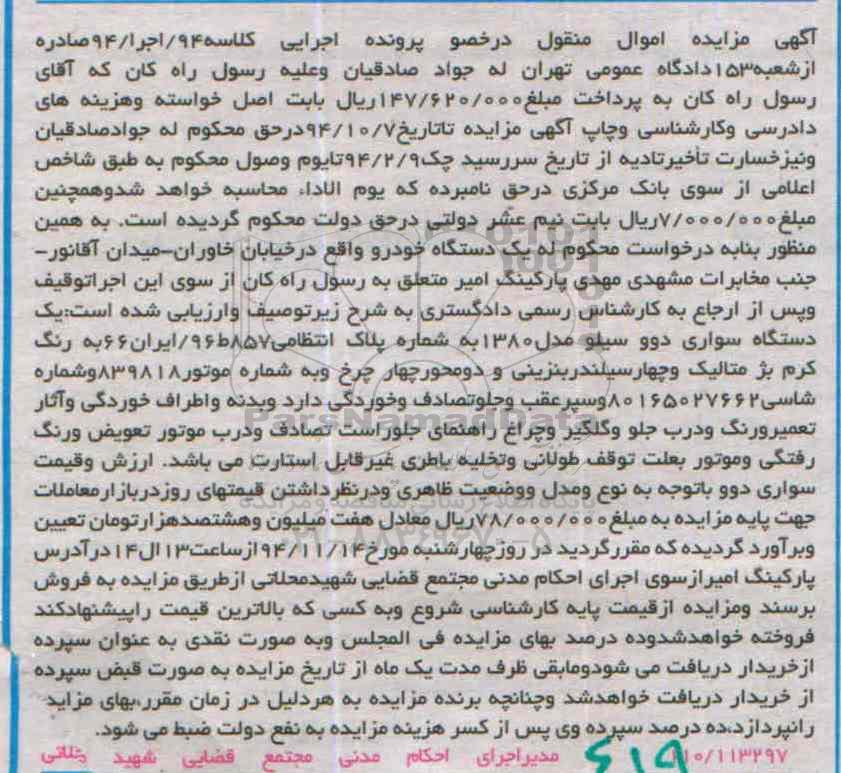 آگهی مزایده اموال منقول درخصو پرونده اجرایی کلاسه۹۴/اجرا/۹۴صادره
ازشعبه۱۵۳دادگاه عمومی تهران له جواد صادقیان وعلیه رسول راه کان که آقای
رسول راه کان به پرداخت مبلغ۱۴۷/۶۲۰/۰۰۰ریال بابت اصل خواسته وهزینه های
دادرسی وکارشناسی وچاپ آگهی مزایده تاتاریخ۹۴/۱۰/۷درحق محکوم له جوادصادقیان
ونیزخسارت تأخیرتادیه از تاریخ سررسید چک۹۴/۲/۹تایوم وصول محکوم به طبق شاخص
اعلامی از سوی بانک مرکزی درحق نامبرده که یوم الاداء محاسبه خواهد شدوهمچنین
مبلغ۷/۰۰۰/۰۰۰ریال بابت نیم عشر دولتی درحق دولت محکوم گردیده است. به همین
منظور بنابه درخواست محکوم له یک دستگاه خودرو واقع درخیابان خاوران-میدان آقانور-
جنب مخابرات مشهدی مهدی پارکینگ امیر متعلق به رسول راه کان از سوی این اجراتوقیف
وپس از ارجاع به کارشناس رسمی دادگستری به شرح زیرتوصیف وارزیابی شده است:یک
دستگاه سواری دوو سیلو مدل۱۳۸۰به شماره پلاک انتظامی۸۵۷ط۹۶/ایران۶۶به رنگ
کرم بژ متالیک وچهارسیلندربنزینی و دومحورچهار چرخ وبه شماره موتور۸۳۹۸۱۸وشماره
شاسی۸۰۱۶۵۰۲۷۶۶۲وسپرعقب وجلوتصادف وخوردگی دارد وبدنه واطراف خوردگی وآثار
تعمیرورنگ ودرب جلو وگلگیر وچراغ راهنمای جلوراست تصادف ودرب موتور تعویض ورنگ
رفتگی وموتور بعلت توقف طولانی وتخلیه باطری غیرقابل استارت می باشد. ارزش وقیمت
سواری دوو باتوجه به نوع ومدل ووضعیت ظاهری ودرنظرداشتن قیمتهای روزدربازارمعاملات
جهت پایه مزایده به مبلغ۷۸/۰۰۰/۰۰۰ریال معادل هفت میلیون وهشتصدهزارتومان تعیین
وبرآورد گردیده که مقررگردید در روزچهارشنبه مورخ۹۴/۱۱/۱۴ازساعت۱۳ال۱۴درآدرس
پارکینگ امیرازسوی اجرای احکام مدنی مجتمع قضایی شهیدمحلاتی ازطریق مزایده به فروش
برسند ومزایده ازقیمت پایه کارشناسی شروع وبه کسی که بالاترین قیمت راپیشنهادکند
فروخته خواهدشدوده درصد بهای مزایده فی المجلس وبه صورت نقدی به عنوان سپرده
ازخریدار دریافت می شودومابقی ظرف مدت یک ماه از تاریخ مزایده به صورت قبض سپرده
از خریدار دریافت خواهدشد وچنانچه برنده مزایده به هردلیل در زمان مقرر،بهای مزاید
رانپردازد،ده درصد سپرده وی پس از کسر هزینه مزایده به نفع دولت ضبط می شود.
۱۱۰/۱۱۳۲۹۷ مدیراجرای احکام مدنی مجتمع قضایی شهید محلاتی
ParsNamadData
۰۲۱-۸۸۳۴۹۶۷۰-۵